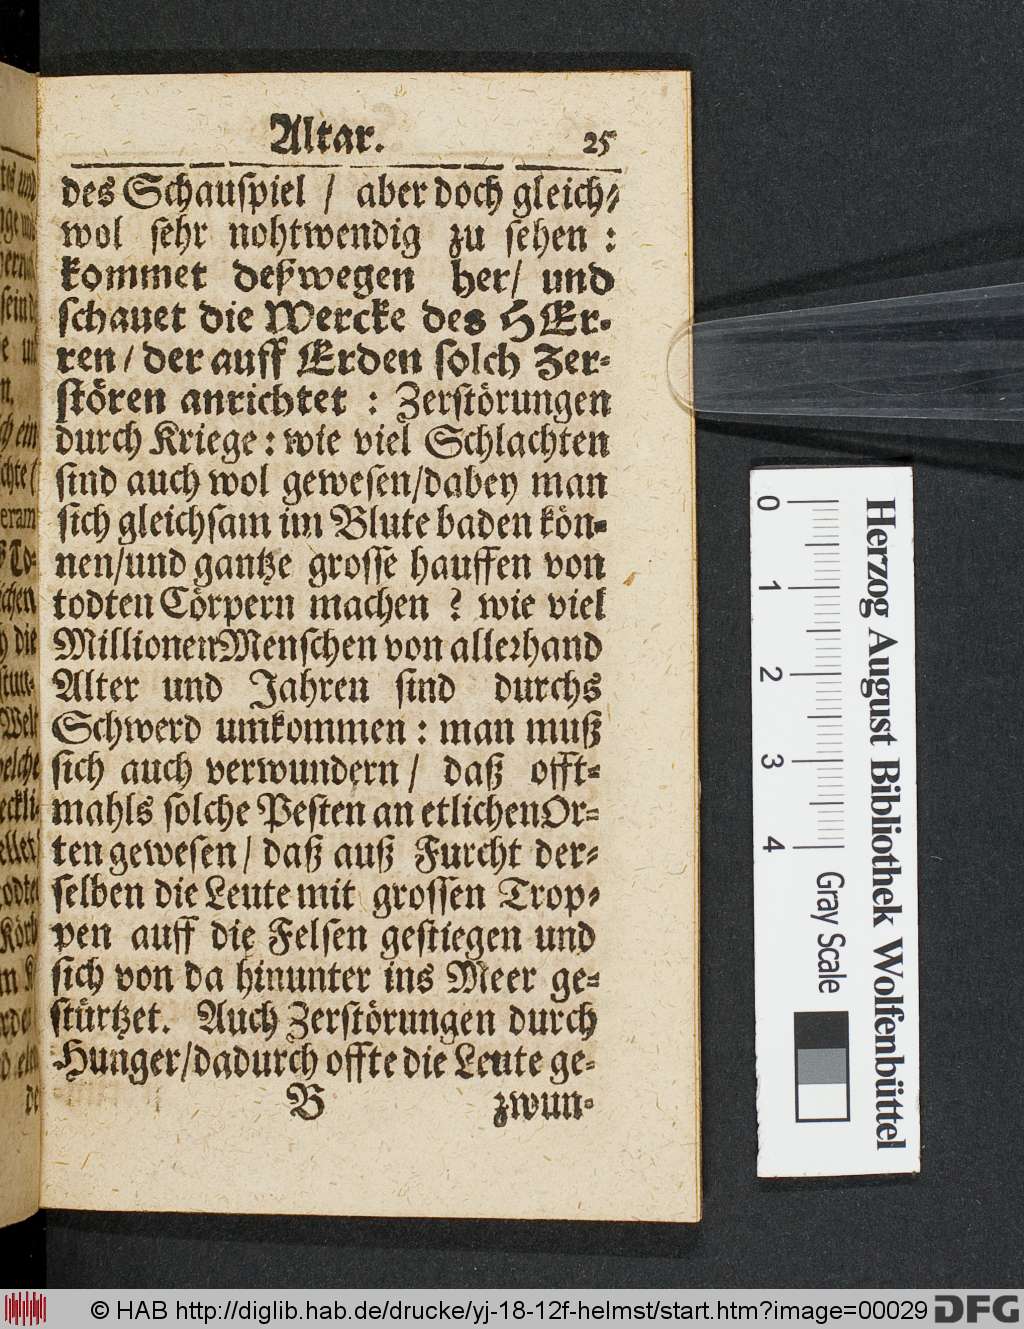 Altar. 25
des Schauſpiel / aber doch gleich⸗
wol ſehr nohtwendig zu ſehen :
kommet deßwegen her/ und
ſchauet die Wercke des HEr⸗
ren / der auff Erden ſolch Zer⸗
ſtören anrichtet : Zerſtörungen
durch Kriege : wie viel Schlachten
ſind auch wol geweſen/dabey man
ſich gleichſam im Blute baden kön⸗
nen/und gantze groſſe hauffen von
todten Cörpern machen ? wie viel
Millionen Menſchen von allerhand
Alter und Jahren ſind durchs
Schwerd umkommen : man muß
ſich auch verwundern / daß offt⸗
mahls ſolche Peſten an etlichen Or⸗
ten geweſen / daß auß Furcht der⸗
ſelben die Leute mit groſſen Trop⸗
pen auff die Felſen geſtiegen und
ſich von da hinunter ins Meer ge⸗
ſtürtzet. Auch Zerſtörungen durch
Hunger/dadurch offte die Leute ge⸗
B zwun⸗
0 1 2 3 4 Gray Scale
Herzog August Bibliothek Wolfenbüttel
© HAB http://diglib.hab.de/drucke/yj-18-12f-helmst/start.htm?image=00029 DFG